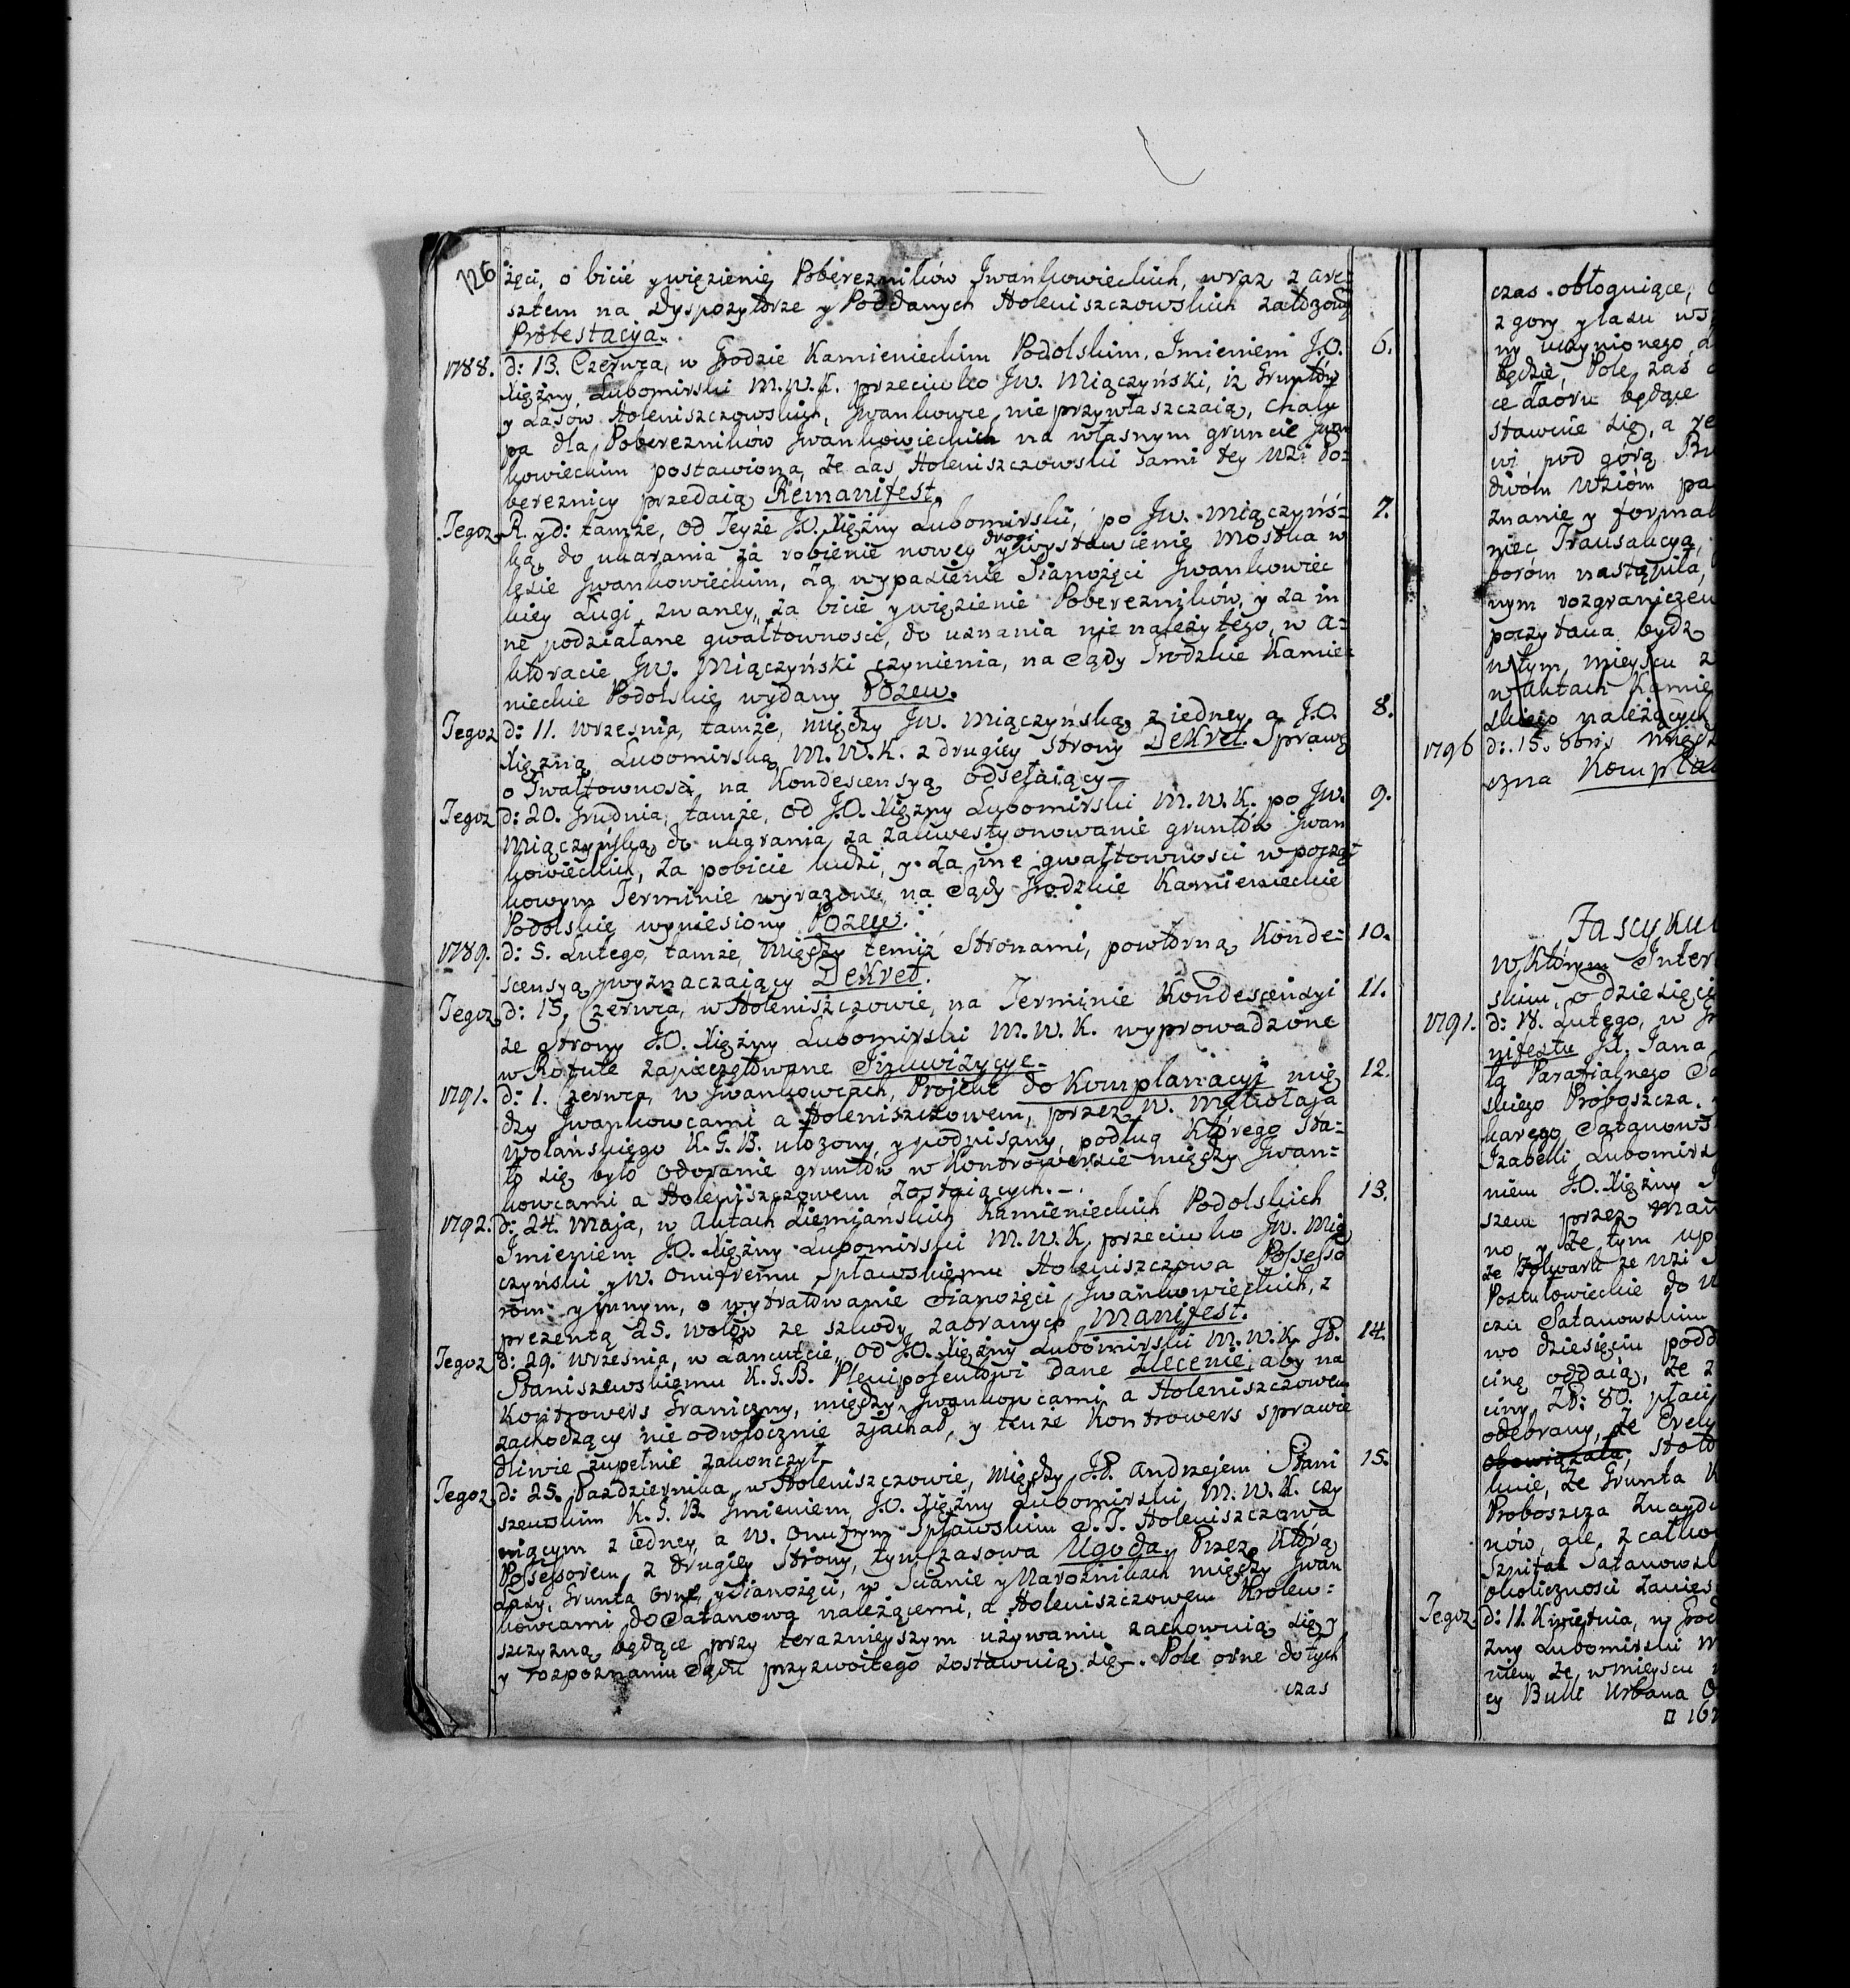 126
żęci, o bicie y więzienię Poberezników Jwankowieckich, wraz z are=
sztem na Dyspozytorze y Poddanych Holeniszczowskich załozoną
Protestacya.
1788. d: 13. Czerwca, w Grodzie Kamienieckim Podolskim, Jmieniem J.O. 6.
Xiężny Lubomirski M.W.K. przeciwko Jw. Miączyński, iz Gruntów
y Lasów Holeniszczowskich, Jwankowce nie przywłaszczaią, chału
pa dla Poberezników Jwankowieckich na własnym gruncie Jwan
kowieckim postawiona, że Las Holeniszczowski sami tey Wsi Po=
bereznicy przedaią Remanifest.
Tegoz R. y d: tamże, od Teyże J.O. Xiężny Lubomirski, po Jw. Miączyńs= 7.
ką, do ukarania za robienie nowey drogi y wystawienię Mostka w
lęsie Jwankowieckim, za wypasienie Sianożęci Jwankowiec
kiey Ługi zwaney, za bicie y więzienie Poberezników, y za in
ne podziałane gwałtownosci, do uznania nie należytego, w A=
ktoracie Jw. Miączyński czynienia, na Sądy Grodzkie Kamie=
nieckie Podolskie wydany Pozew.
Tegoz d: 11. Wrzesnia, tamże, między Jw. Miączyńską z iedney, a J.O. 8.
Xiężną Lubomirską M.W.K. z drugiey Strony Dekret. Sprawę
o Gwałtownosci, na Kondescensyą odsełaiący.
Tegoz d: 20. Grudnia, tamże, od J.O. Xiężny Lubomirski M.W.K. po Jw. 9.
Miączyńską do ukarania za zakwestyonowanie gruntów Jwan
kowieckich, za pobicie ludzi, y za ine gwałtownosci w począt
kowym Terminie wyrażone, na Sądy Grodzkie Kamienieckie
Podolskie wyniesiony Pozew.
1789. d: 5. Lutego, tamże, między temiż Stronami, powtorną Konde= 10.
scensyą wyznaczaiący Dekret.
Tegoz d: 15. Czerwca, w Holeniszczowie, na Terminie Kondescensyi 11.
ze Strony J.O. Xiężny Lubomirski M.W.K. wyprowadzone
w Rotule zapieczętowane Jnkwizycye.
1791. d: 1. Czerwca, w Jwankowcach, Projekt do Komplanacyi mię 12.
dzy Jwankowcami a Holeniszczowem, przez W. Mikołaja
Wolańskiego K.G.B. ułozony y podpisany, podług którego sta=
ło się było odoranie gruntów w Kontrowersie między Jwan=
kowcami a Holeniszczowem zostaiących.
1792. d: 24. Maja, w Aktach Ziemiańskich Kamienieckich Podolskich 13.
Jmieniem J.O. Xiężny Lubomirski M.W.K. przeciwko Jw. Mią
czyński y W. Onufremu Spławskiemu Holeniszczowa Possesso
rom y innym, o wytratowanie Sianożęci Jwankowieckich, z
prezentą 25. wołów ze szkody zabranych Manifest.
Tegoz d: 29. Wrzesnia, w Łancucie, od J.O. Xiężny Lubomirski M.W.K. JP. 14.
Staniszewskiemu K.G.B. Plenipotentowi dane Zlecenie, aby na
Kontrowers Graniczny, między Jwankowcami a Holeniszczowem
zachodzący nieodwłocznie zjachał, y tenże Kontrowers sprawie
dliwie zupełnie zakończył.
Tegoz d: 25. Pazdziernika, w Holeniszczowie, między J.P. Andrzejem Stani 15.
szewskim K.G.B. Jmieniem J.O. Xiężny Lubomirski, M.W.K. czy
niącym z iedney, a W. Onufrym Spławskim S.T. Holeniszczowa
Possessorem, z drugiey Strony, tymczasowa Ugoda. Przez którą
Lasy, Grunta orne, y Sianożęci, w Scianie y Naroznikach między Jwan
kowcami do Satanowa należącemi, a Holeniszczowem Krolew=
szczyzną będące przy terazniejszym używaniu zachowuią się,
y rozpoznaniu Sądu przyzwoitego zostawuią się. Pole orne dotych
czas
czas obłoguiące,
z gory y lasu
ny uczynionego
będzie, Pole zaś
ce dworu będące
stawuie się, a
wi pod górą
dwom Wsiom
znanie y formal
niec Transakcyą,
borom nastąpiła,
nym rozgraniczen
poczytana bydz
w tym mieyscu z
w Aktach Kamie
skiego należących
1796 d: 15. 8bris międz
czna Kompla
Fascyku
w którym Inter
skim, o dziesięci
1791. d: 18. Lutego, w
nifestu JX. Jana
ła Parafialnego
skiego Proboszcza
karego Satanows
Izabelli Lubomirs
niem J.O. Xiężny
szem przez
no y że tym
że Folwark ze Wsi
Postołowieckie do
czu Satanowskim
wo dziesięciu podd
cinę oddaią, że z
ciny Zł: 80. płaci
odebrany, że
obowiązała,
kuie, że Grunta
Proboszcza
nów, ale z całko
Szpital Satanowsk
okolicznosci
Tegoz. d: 11. Kwietnia, w Grod
żny Lubomirski
niem że w mieyscu
cy Bulli Urbana